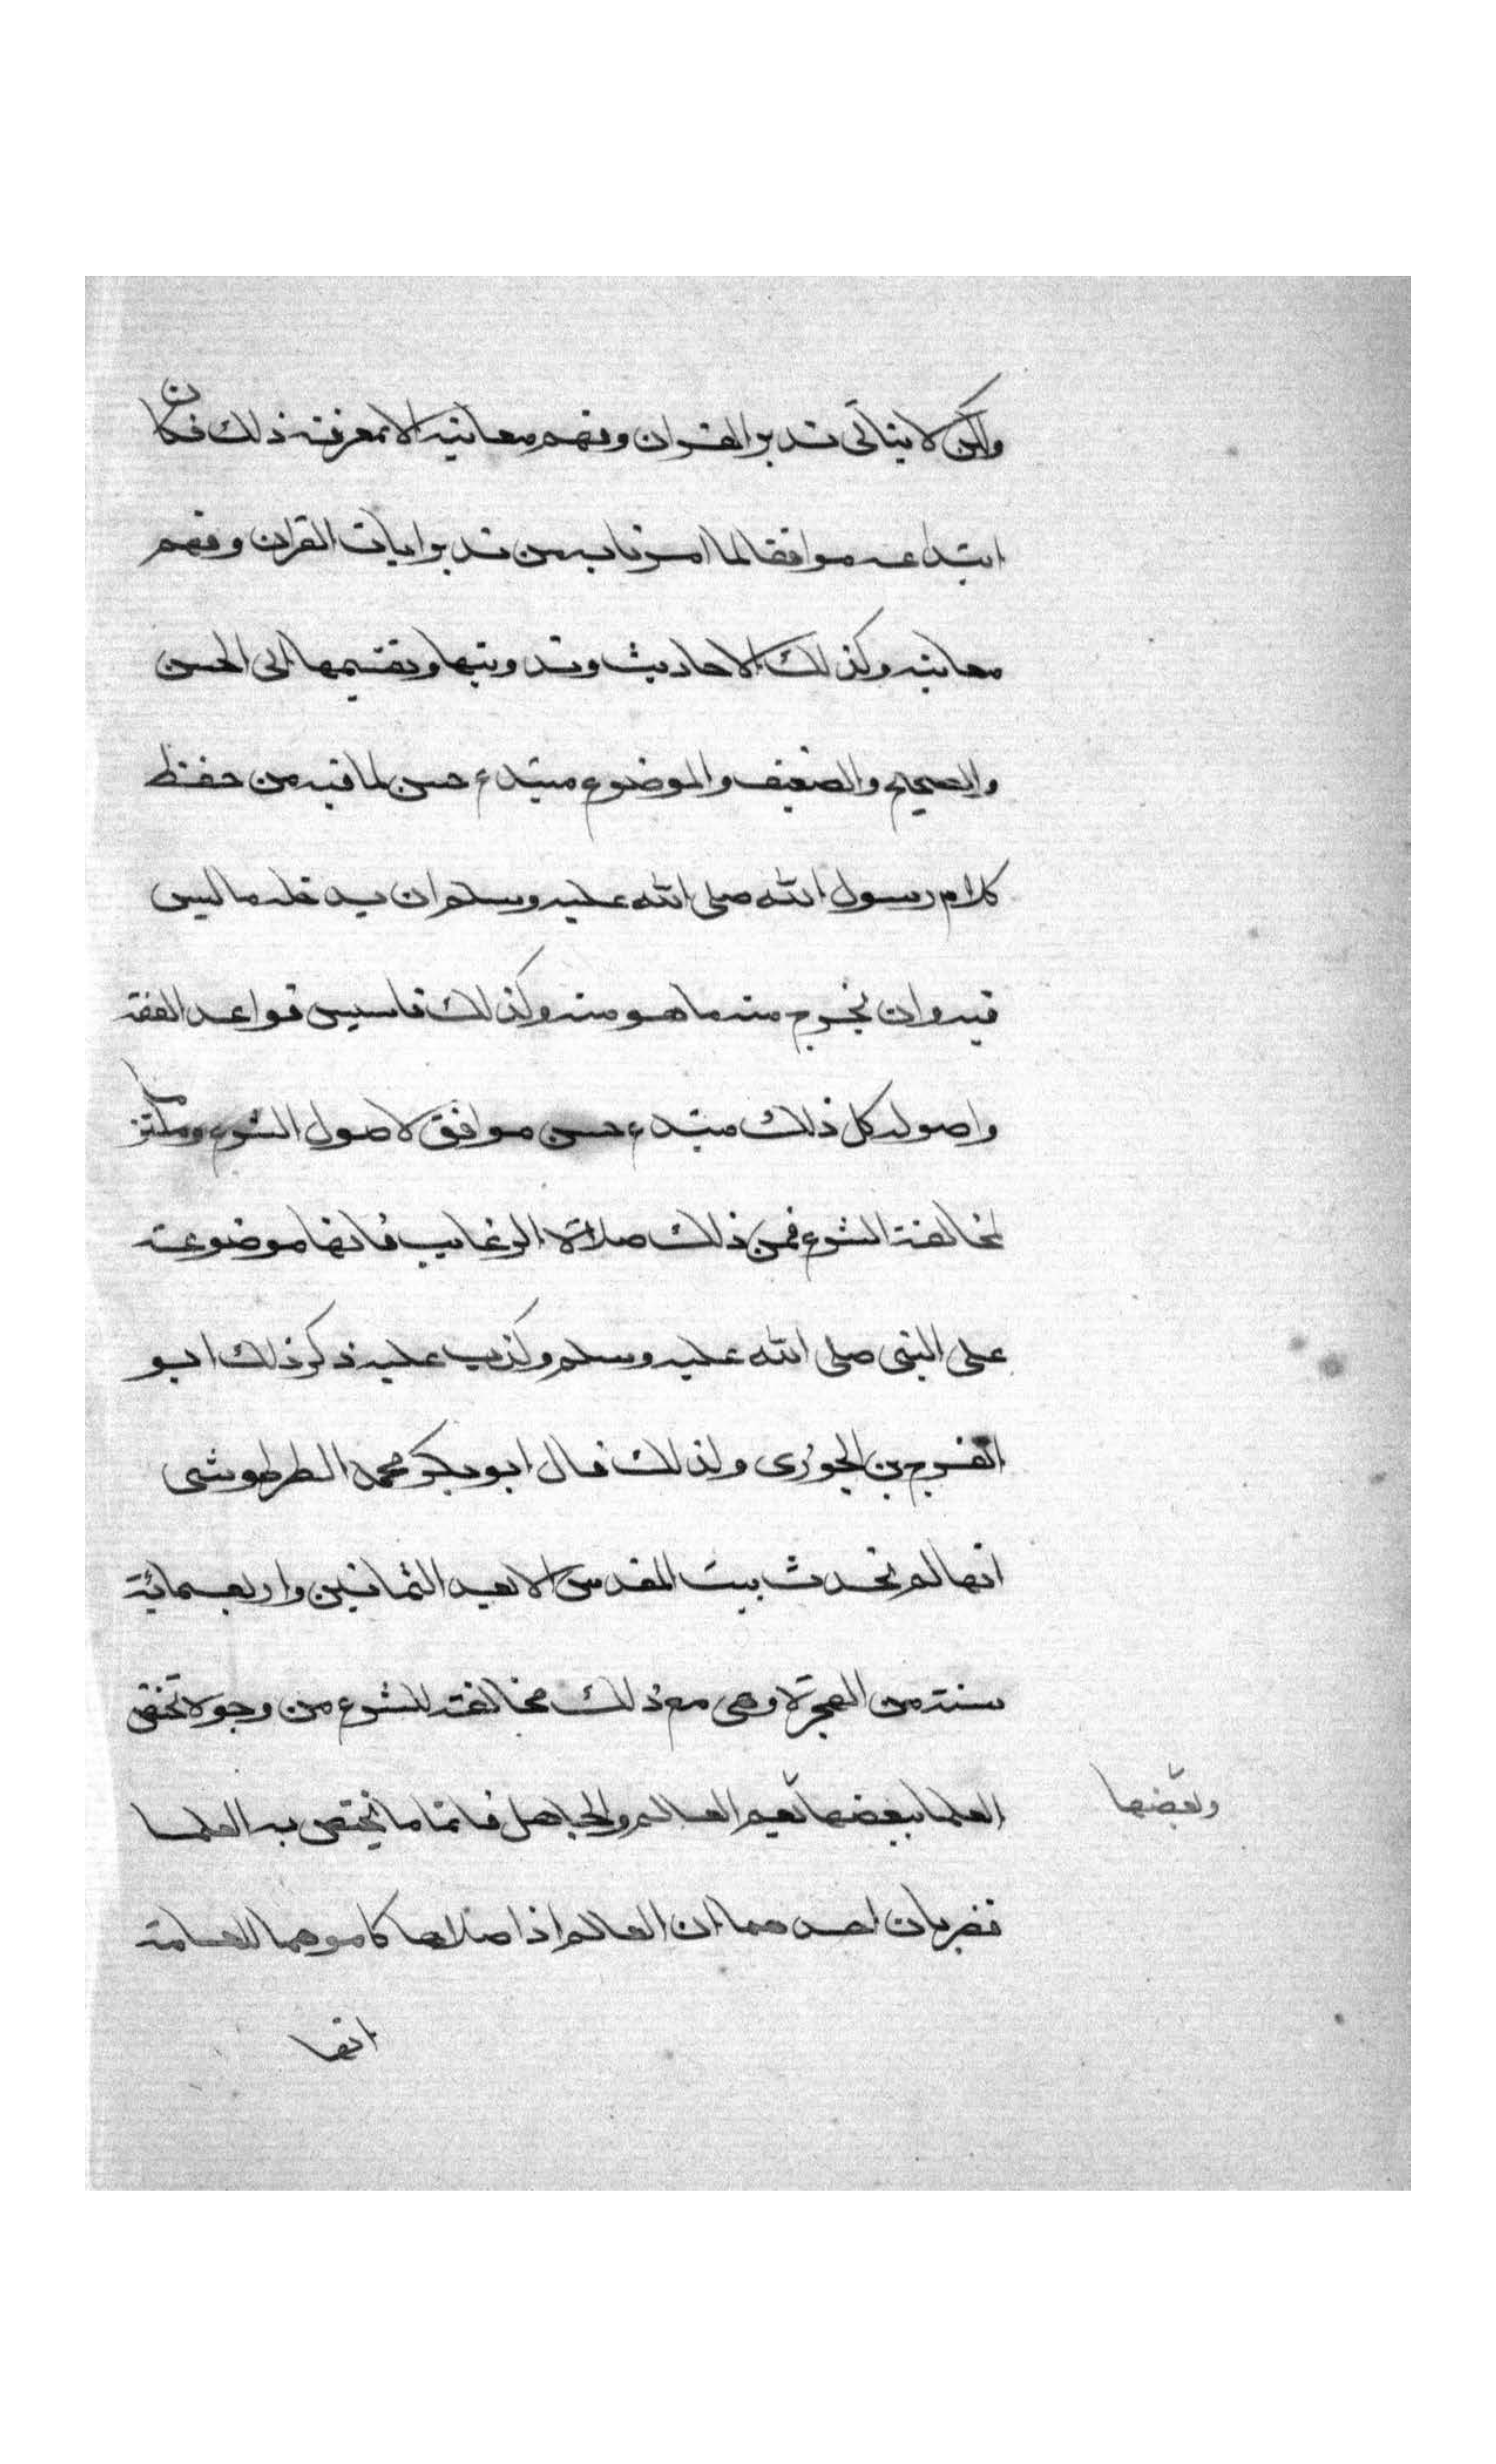 ولكن لا يتأتى تدبر القران وفهم معانيه الا بمعرفة ذلك فكان
ابتداعه موافقا لما امرنا به من تدبر ايات القران وفهم
معانيه وكذلك الاحاديث وتدوينها وتقسيمها الى الحسن
والصحيح والضعيف والموضوع مبتدع حسن لما فيه من حفظ
كلام رسول الله صلى الله عليه وسلم ان يدخله ما ليس
فيه وان يخرج منه ما هو منه وكذلك تاسيس قواعد الفقه
واصوله كل ذلك مبتدع حسن موافق لاصول الشرع
لمخالفة الشرع فمن ذلك صلاة الرغايب فانها موضوعة
على النبى صلى الله عليه وسلم وكذب عليه ذكر ذلك ابو
الفرج بن الجوزى ولذلك قال ابو بكر محمد الطرطوشى
انها لم تحدث ببيت المقدس الا بعيد الثمانين واربعمائة
سنة من الهجرة وهى مع ذلك مخالفة للشرع من وجوه تختص
العلما ببعضها تعيم العالم والجاهل فاما ما يختص به العلما
وبعضها
فضربان احدهما ان العالم اذا صلاها كا موهما للعامة
انها